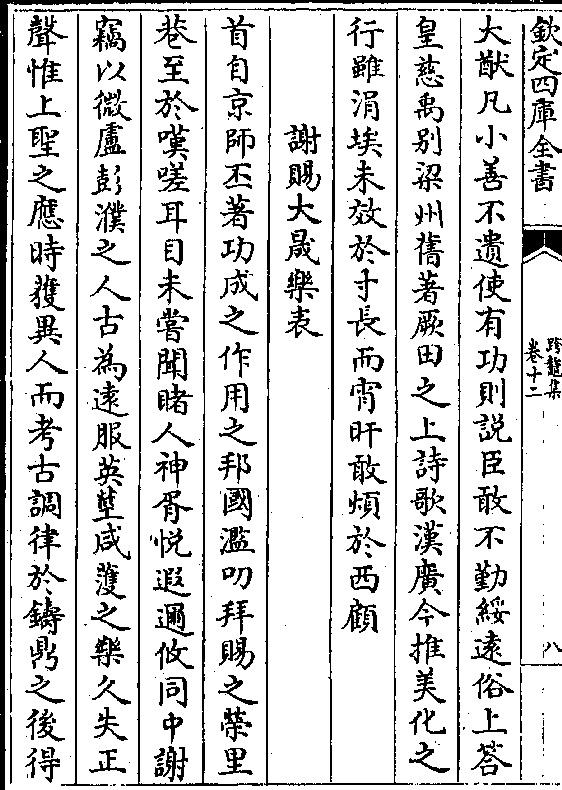 欽定四庫全書
跨鼇集
卷十二
八
大猷凡小善不遺使有功則説臣敢不勤綏遠俗上荅
皇慈禹别梁州舊著厥田之上詩歌漢廣今推美化之
行雖涓埃未效於寸長而宵旰敢煩於西顧
謝賜大晟樂表
首自京師丕著功成之作用之邦國濫叨拜賜之榮里
巷至於嘆嗟耳目未嘗聞睹人神胥悦遐邇攸同中謝
竊以微盧彭濮之人古為逺服英莖咸頀之樂久失正
聲惟上聖之應時獲異人而考古調律於鑄鼎之後得